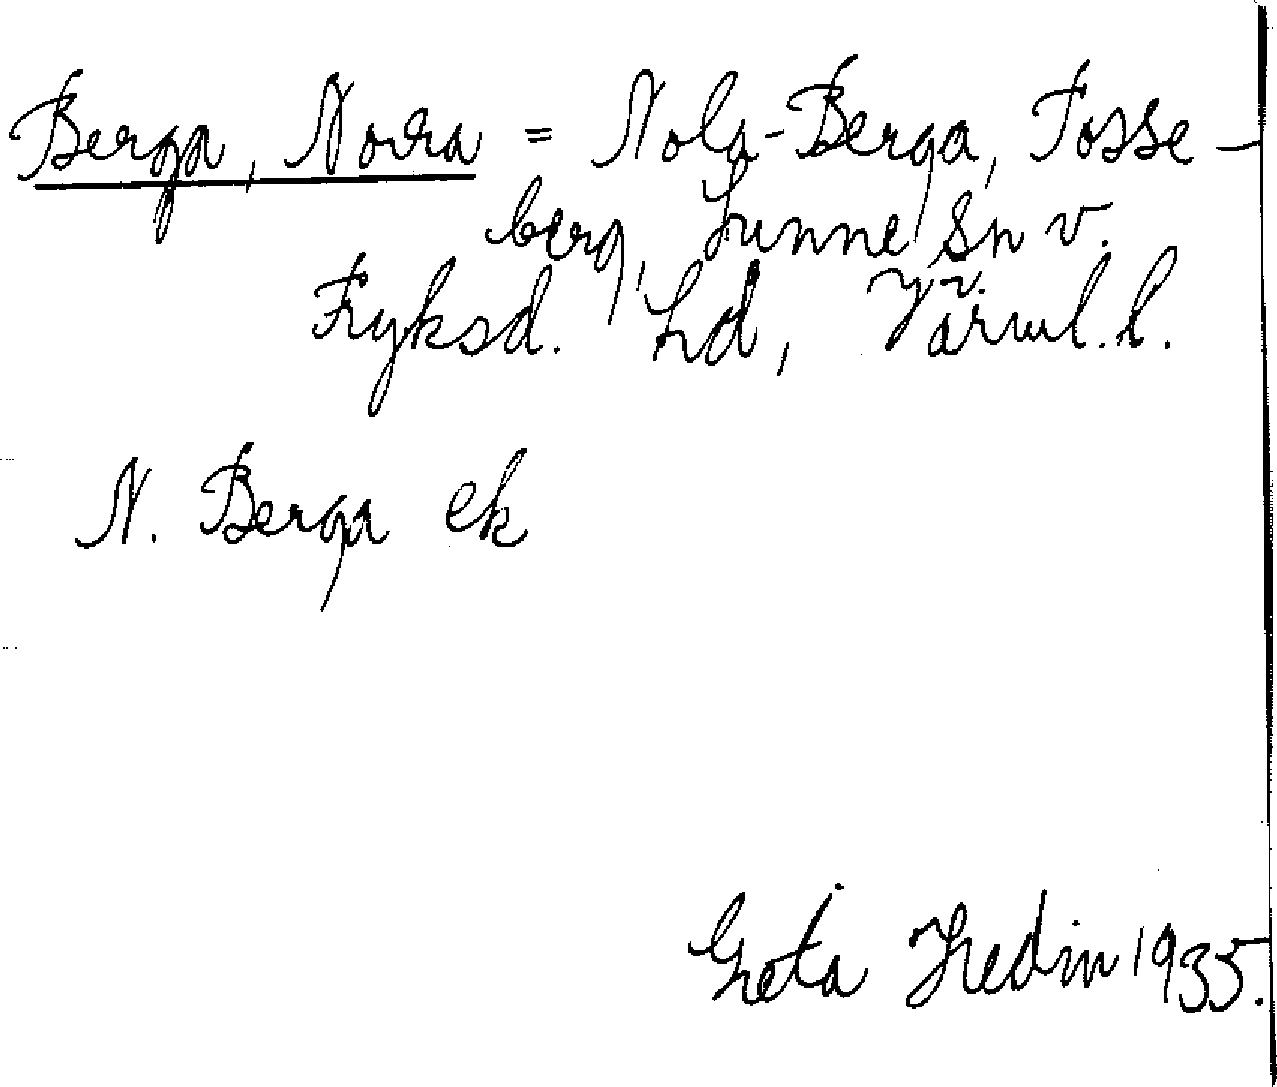 Berga, Norra = Nola-Berga, Fosse-
berg, Sunne Sn v.
Fryksd. Hd, Värml. l.
N. Berga ek
Greta Hedin 1935.